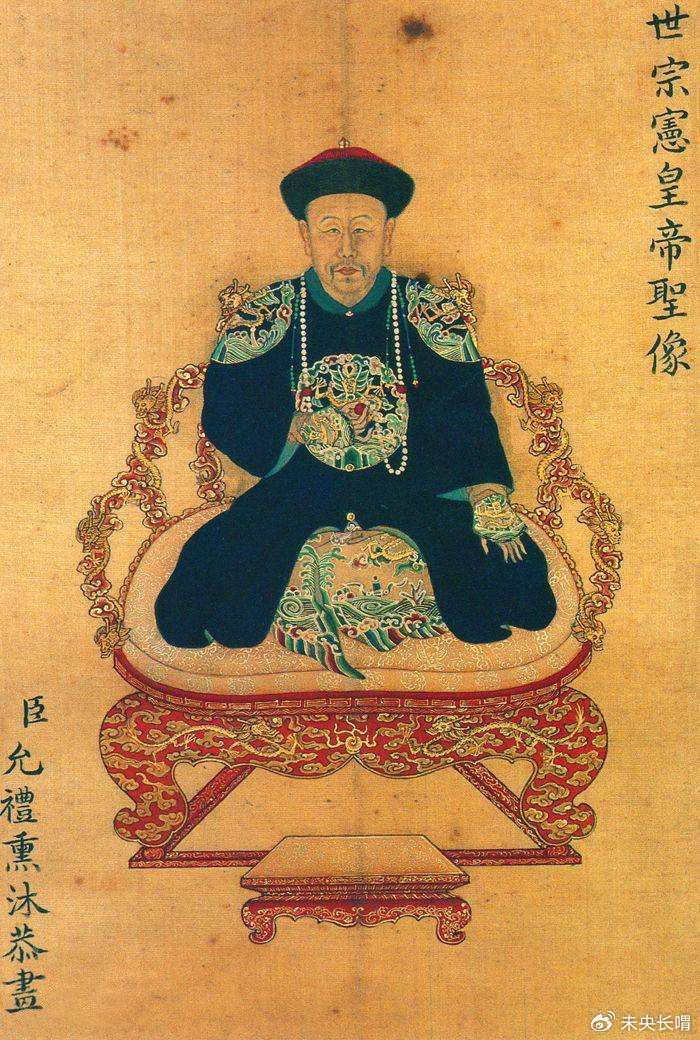 世宗憲皇帝聖像
臣允禮熏沐恭畫
未央长喟